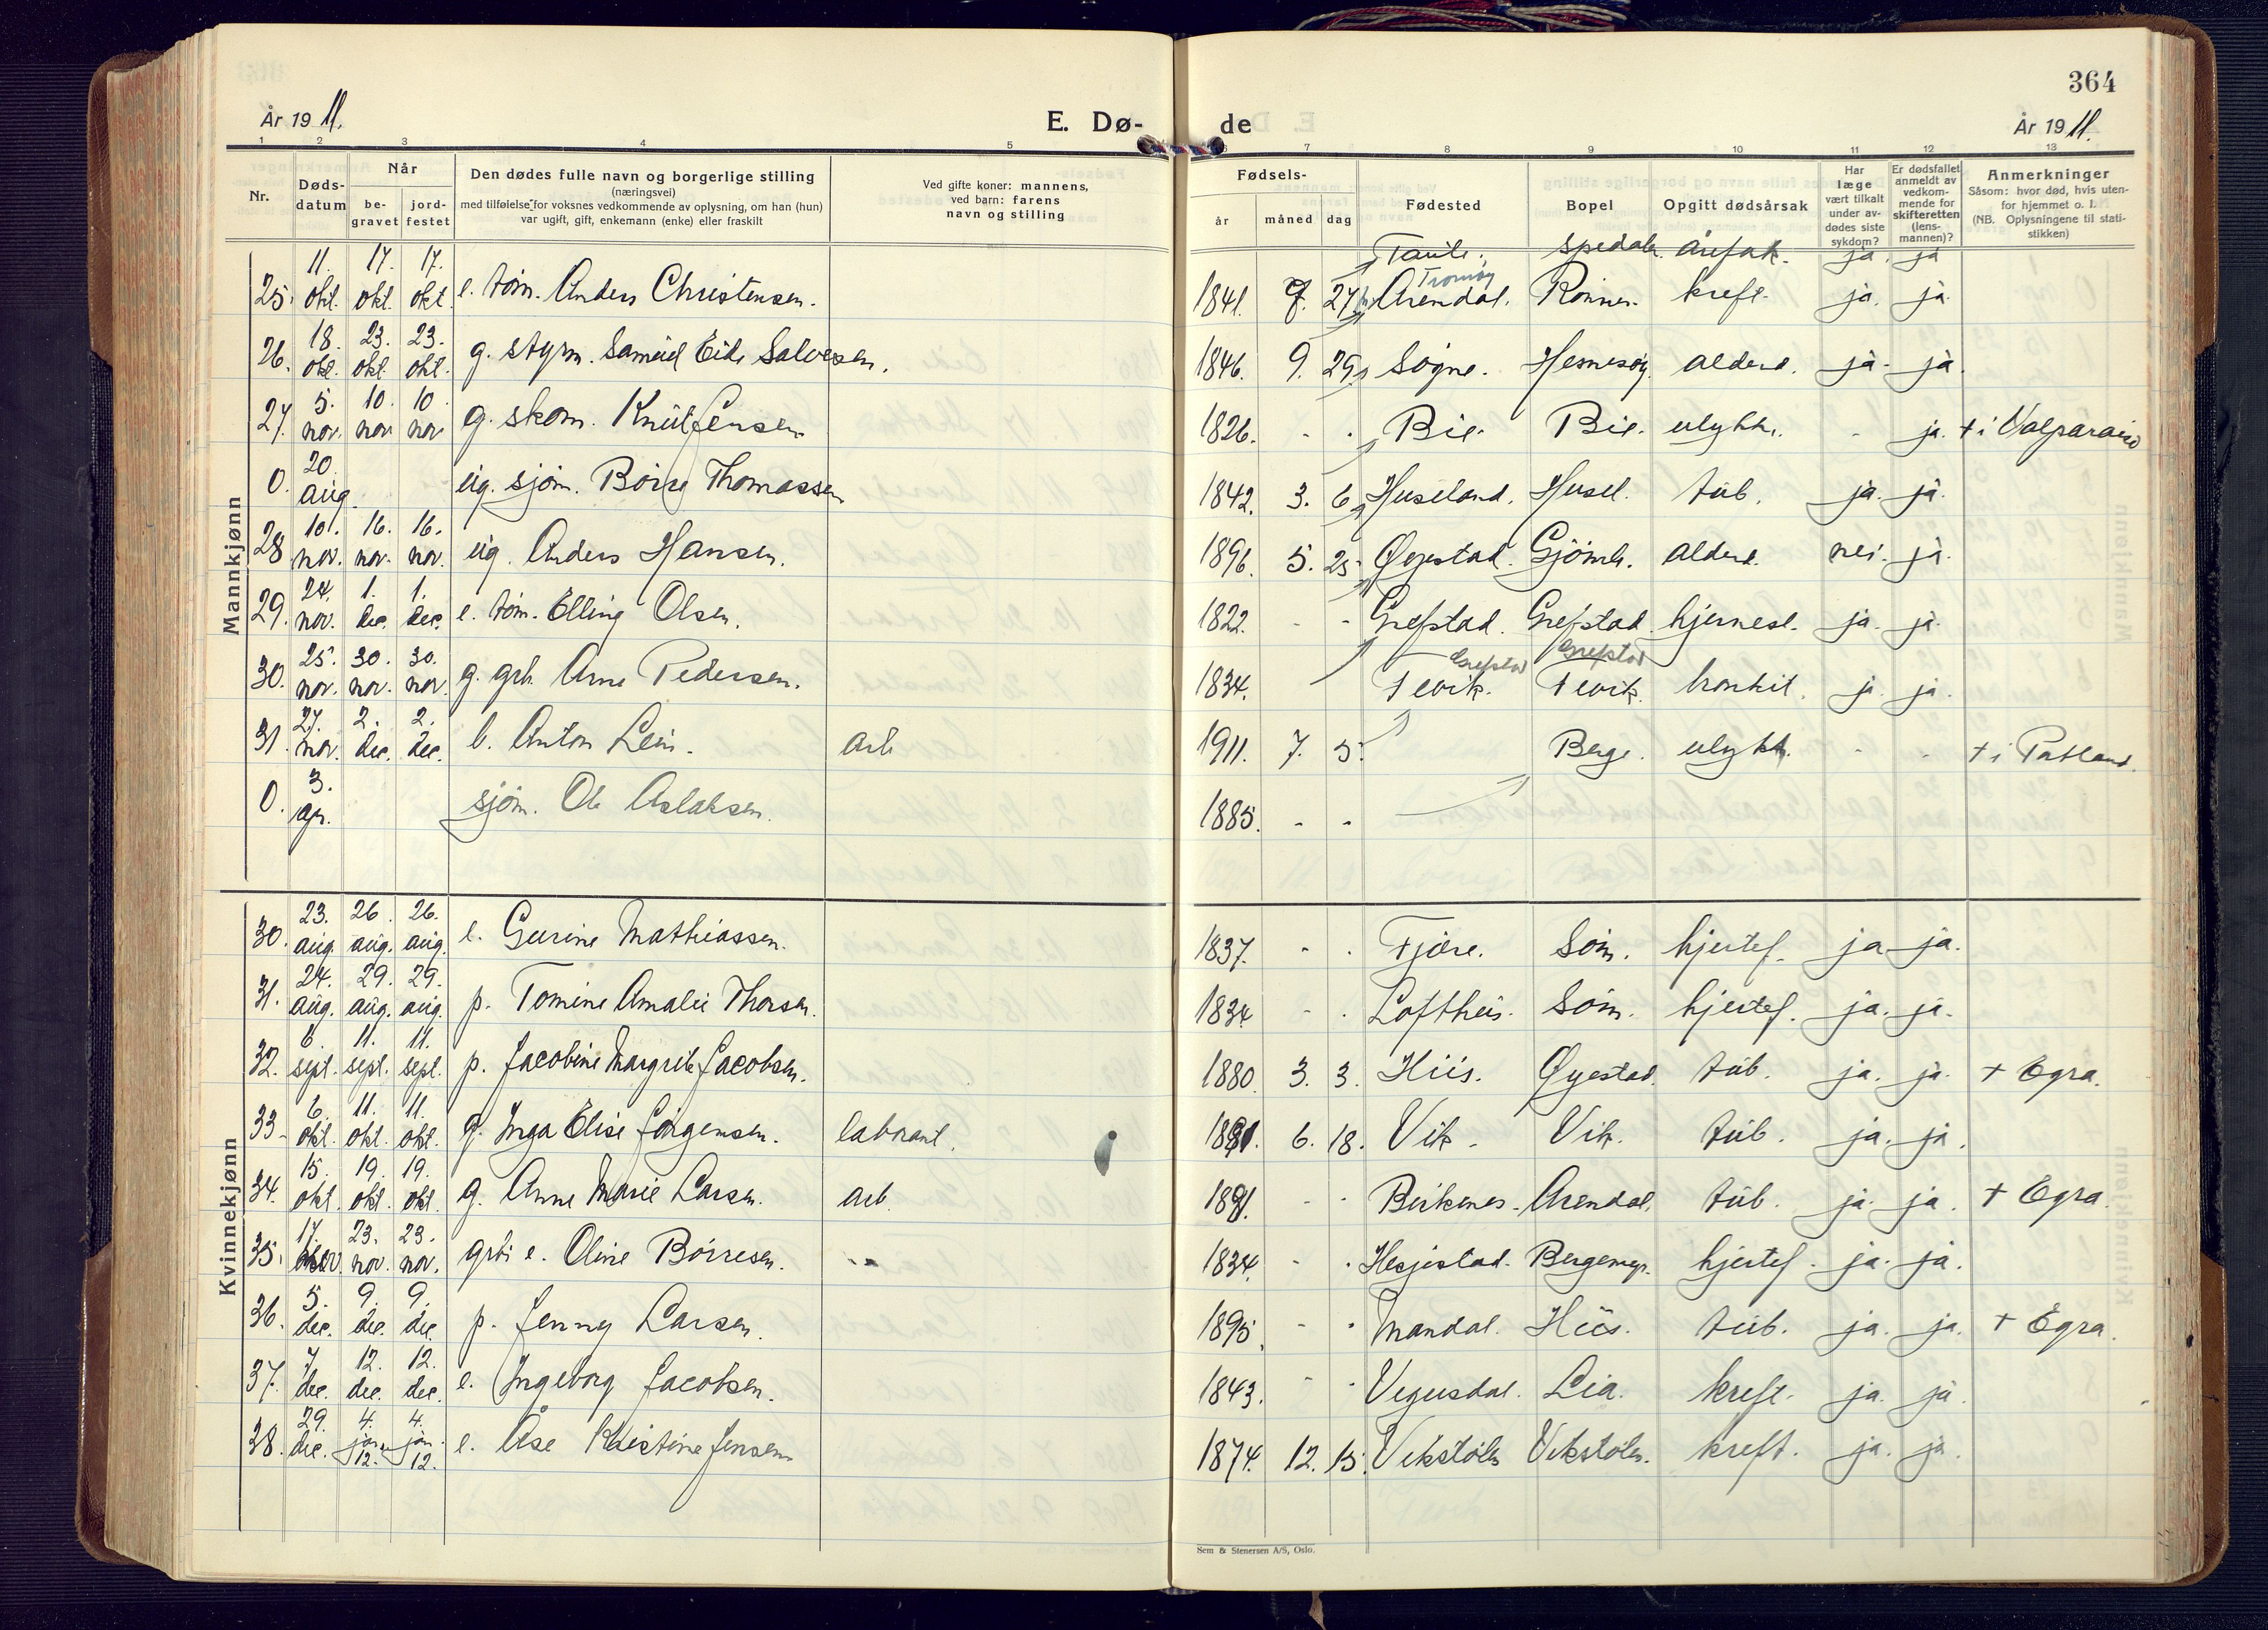 364
År 1911.
E. Dø-
de
År 1911.
1 2 3 4 5 6 7 8 9 10 11 12 13
Nr.
Døds-
datum
Når
be-
gravet
jord-
festet
Den dødes fulle navn og borgerlige stilling
(næringsvei)
med tilføielse for voksnes vedkommende av oplysning, om han (hun)
var ugift, gift, enkemann (enke) eller fraskilt
Ved gifte koner: mannens,
ved barn: farens
navn og stilling
Fødsels-
år måned dag
Fødested
Bopel
Opgitt dødsårsak
Har
læge
vært tilkalt
under av-
dødes siste
sykdom?
Er dødsfallet
anmeldt av
vedkom-
mende for
skifteretten
(lens-
mannen)?
Anmerkninger
Såsom: hvor død, hvis uten-
for hjemmet o. l.
(NB. Oplysningene til stati-
stikken)
Mannkjønn
spedals. årefork. ja. ja
25. 11. okt. 17. okt. 17. okt. e. tøm. Anders Christensen. 1841. 9. 27. Arendal. Tromøy Rønnes. kreft. ja. ja.
26. 18. okt. 23. okt. 23. okt. g. styrm. Samuel Eide Salvesen. 1846. 9. 29. Søgne. Hesnesøy. alderd. ja. ja.
27. 5. nov. 10. nov 10. nov g. skom. Knut Jensen 1826. - - Bie. Bie. ulykk. - ja. + i Valparaiso
0. 20. aug. ug. sjøm. Børre Thomassen 1842. 3. 6. Huseland. Husel. tub. ja. ja.
28. 10. nov. 16. nov. 16. nov. ug. Anders Hansen. 1896. 5. 25. Øyestad. Gjømle. alderd. nei. ja.
29. 24. nov. 1. dec. 1. dec. e. tøm. Elling Olsen. 1822. - - Grefstad. Grefstad hjernesl. ja. ja.
30. 25. nov. 30. nov. 30. nov. g. grb. Arne Pedersen. 1834. Fevik. Grefstad Fevik. Grefstad bronkit. ja. ja.
31. 27. nov. 2. dec. 2. dec. b. Anton Leis. arb 1911. 7. 5. Berge. ulykk. - - + i Portland.
0. 3. apr. sjøm. Ole Aslaksen. 1885. - -
Kvinnekjønn
30. 23. aug. 26. aug. 26. aug. e. Gurine Mathiassen. 1837. - - Fjære. Søm. hjertef. ja ja.
31. 24. aug. 29. aug. 29. aug. p. Tomine Amalie Thorsen. 1834 - - Lofthus. Søm. hjertef. ja. ja.
32. 6. sept. 11. sept. 11. sept. p. Jacobine Margrete Jacobsen. 1880. 3. 3. Hiis. Øyestad. tub. ja. ja. + Egra.
33. 6. okt. 11. okt. 11. okt. g. Inga Elise Jørgensen. laborant. 1881. 6. 18. Vik. Vik. tub. ja. ja.
34. 15. okt. 19. okt. 19. okt. g. Anne Marie Larsen. arb. 1891. - - Birkenes. Arendal. tub. ja. ja. + Egra.
35. 17. nov. 23. nov. 23. nov. grbr. e. Oline Børresen. 1834. - - Hesjestad. Bergemyr. hjertef. ja. ja.
36. 5. dec. 9. dec. 9. dec. p. Jenny Larsen. 1895. - - Mandal. Hiis. tub. ja. ja. + Egra.
37. 7. dec. 12. dec. 12. dec. e. Ingeborg Jacobsen. 1843. - - Vegusdal. Lia. kreft. ja. ja.
38. 29. dec. 4. jan. 12. 4. jan. 12. e. Åse Kristine Jensen 1874. 12. 15. Vikstølen Vikstølen. kreft. ja. ja.
Sem & Stenersen A/S, Oslo.